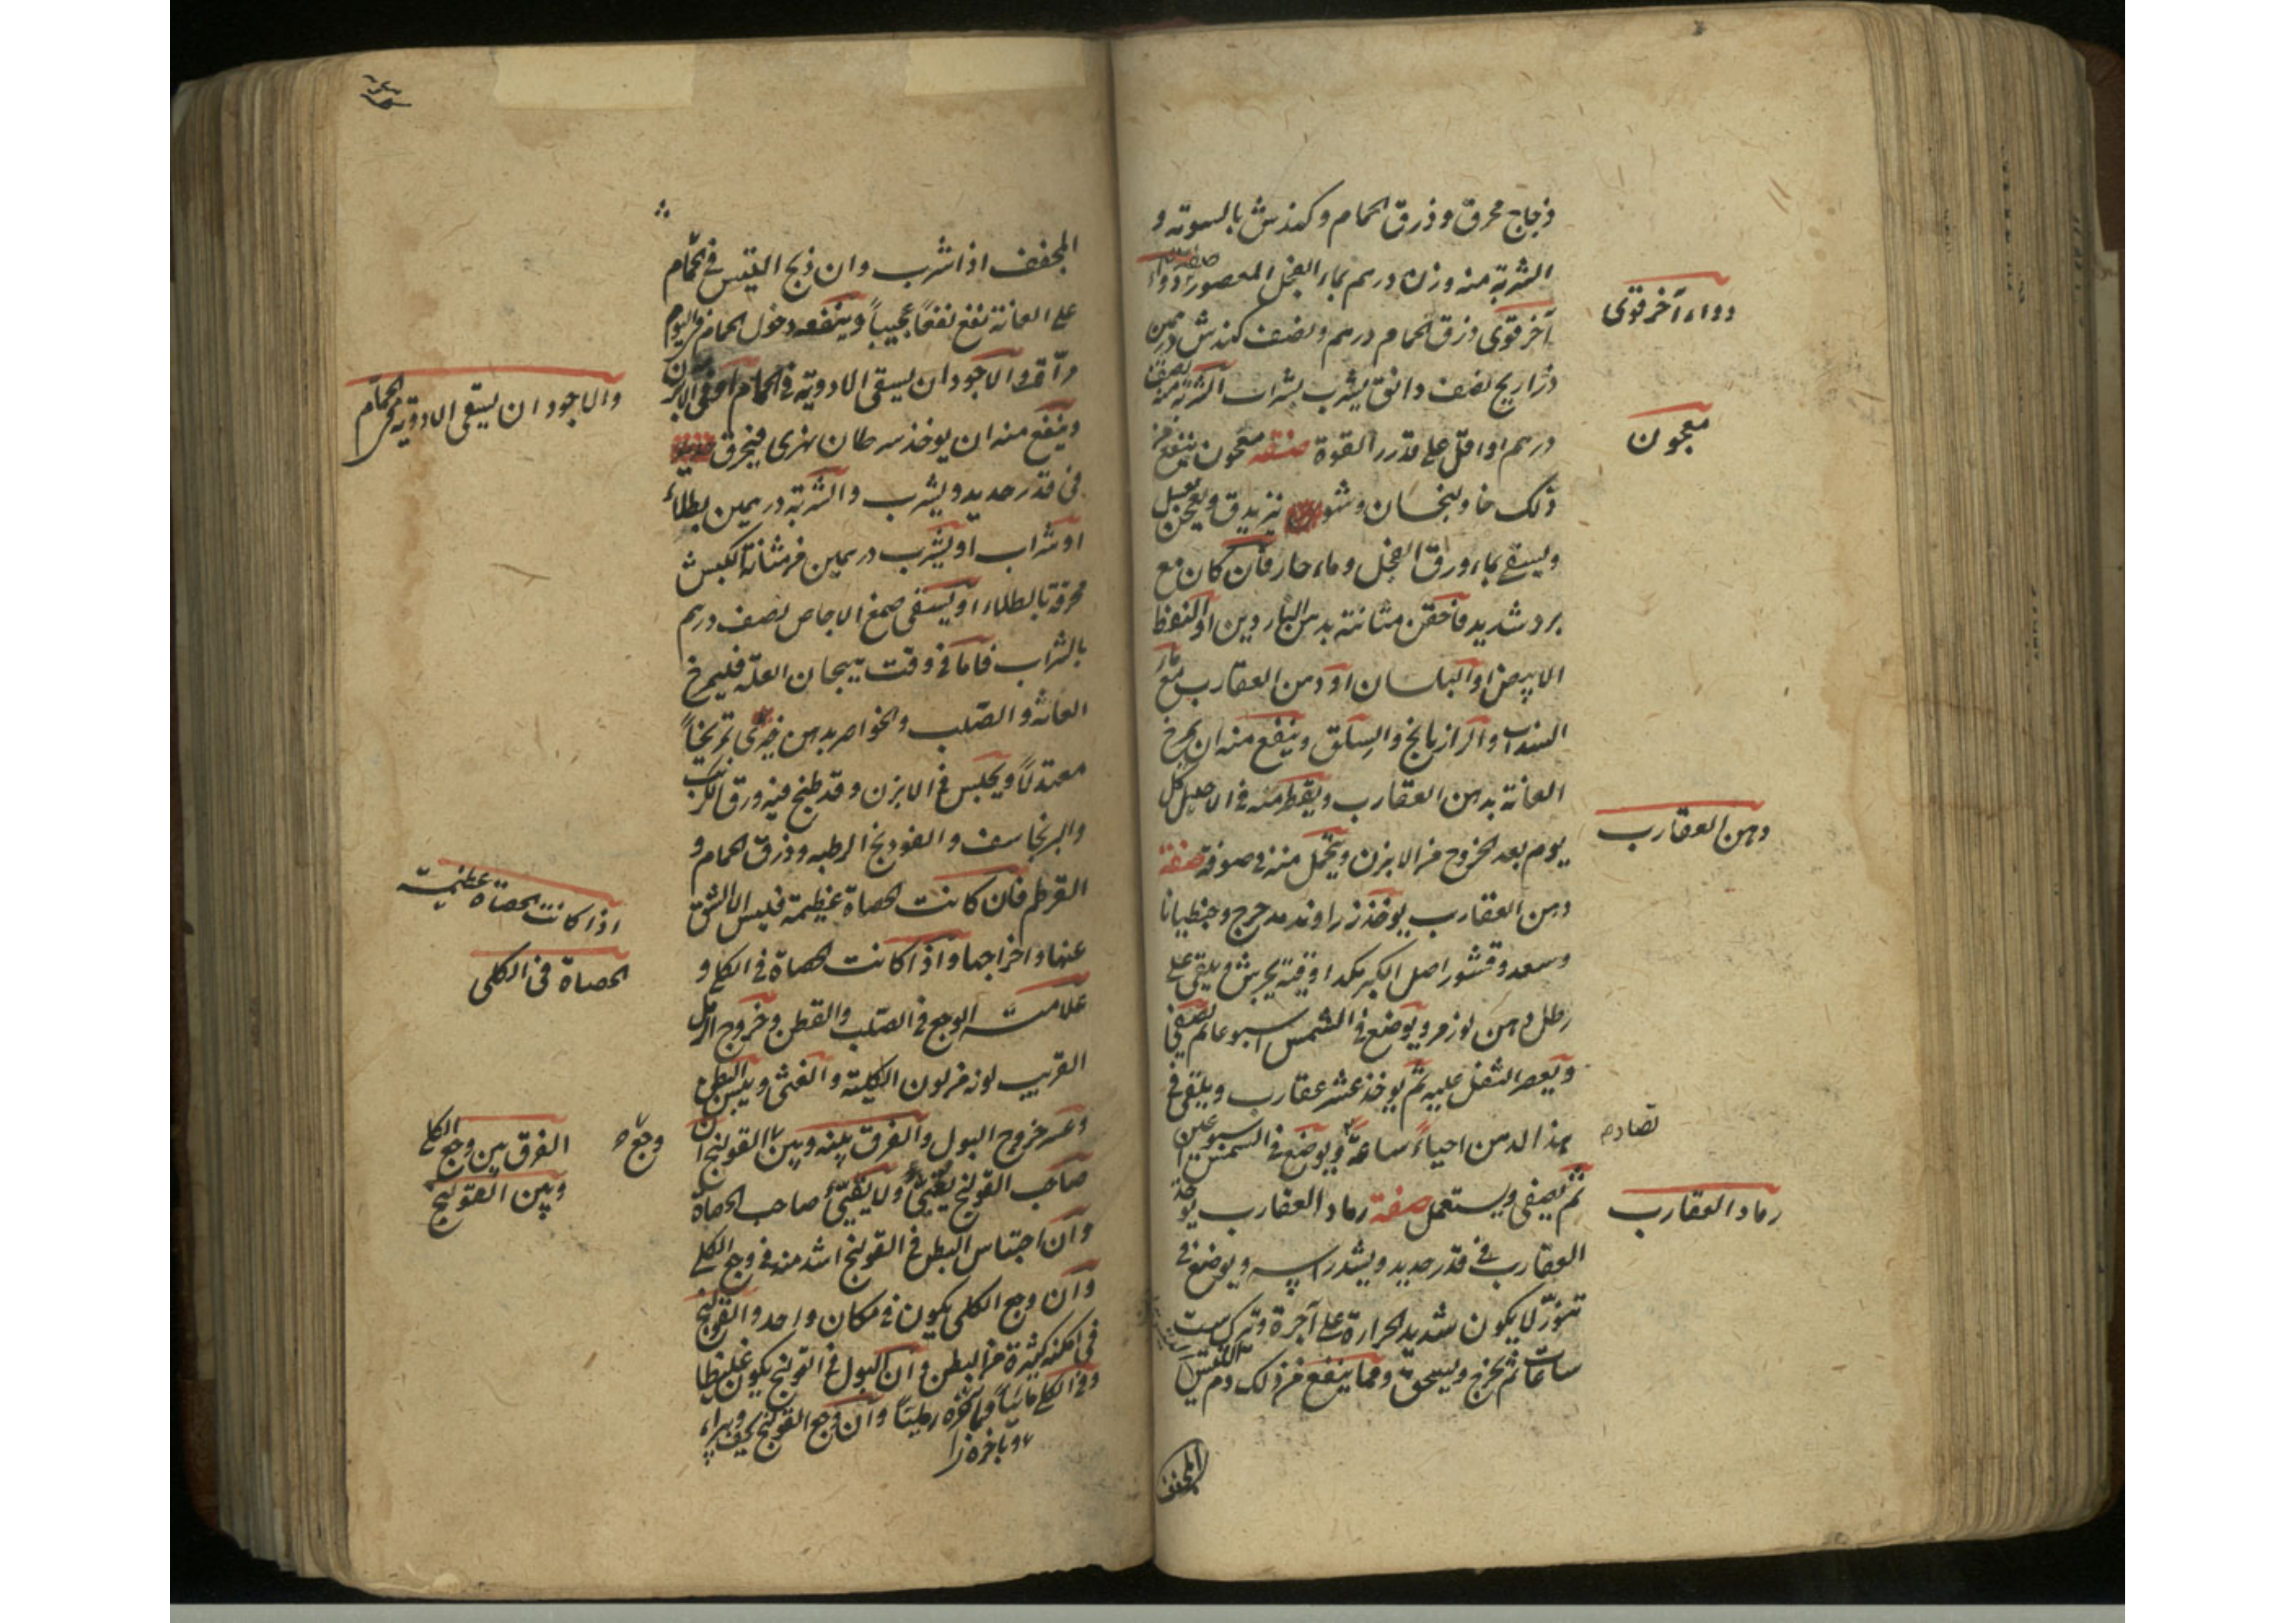 زجاج محرق وذرق الحمام وكندش بالسوية و
الشربة منه وزن درهم بماء الفجل المعصور صفة دواء
آخر قوى ذرق الحمام درهم ونصف كندش درهمين
ذراريح نصف دانق يشرب بشراب الشربة منه نصف
درهم او اقل على قدر القوة صفة معجون ينفع من
ذلك خاولنجان وشو نيز يدق ويعجن بعسل
ويسقى بماء ورق الفجل وماء حار فان كان مع
برد شديد فاحقن مثانته بدهن الناردين او النفط
الابيض او البلسان او دهن العقارب مع ماء
السنداب والرازيانج والسلق وينفع منه ان يمرخ
العانة بدهن العقارب ويقطر منه في الاحليل كل
يوم بعد الخروج من الابزن ويتحمل منه في صوفة صفة
دهن العقارب يوخذ زراوند مدحرج وجنطيانا
وسعد وقشور اصل الكبر مكد اوقية يجرش ويلقى على
رطل دهن لوز مر ويوضع في الشمس اسبوعا ثم يصفى
ويعصر الثفل عليه ثم يوخذ عشر عقارب ويلقى في
هذا الدهن احياءً ساعة ويوضع في الشمس اسبوعين
ثم يصفى ويستعمل صفة رماد العقارب يوخذ
العقارب في قدر حديد ويشد راسه ويوضع في
تنور لا يكون شديد الحرارة على آجرة وتترك ست
ساعات ثم يخرج ويسحق ومما ينفع من ذلك دم التيس
المجفف
دواء آخر قوى
معجون
دهن العقارب
رماد العقارب
المجفف اذا شرب وان ذبح التيس في الحمام
على العانة نفع نفعًا عجيبًا وينفعه دخول الحمام في اليوم
مراة والاجود ان يسقى الادوية في الحمام او في الابزن
وينفع منه ان يوخذ سرطان نهرى فيحرق
في قدر حديد ويشرب والشربة درهمين بطلاء
او شراب او يشرب درهمين من مثانة الكبش
محرقة بالطلاء او يسقى صمغ الاجاص نصف درهم
بالشراب فاما في وقت هيجان العلة فليمرخ
العانة والصلب والخواصر بدهن خيرى تمريخًا
معتدلًا ويجلس في الابزن وقد طبخ فيه ورق الكرنب
والبرنجاسف والفودنج الرطبه وذرق الحمام و
القرطم فان كانت الحصاة عظيمة فليس الا الشق
عنها واخراجها واذا كانت الحصاة في الكلى و
علامته الوجع في الصلب والقطن وخروج الرمل
القريب لونه من لون الكلية والغثى ويبس البطن
وعسر خروج البول والفرق بينه وبين القولنج ان
صاحب القولنج يقيئ ولا يقيئ صاحب الحصاة
وان احتباس البطن في القولنج اشد منه في وجع الكلى
وان وجع الكلى يكون في مكان واحد والقولنج
في امكنه كثيرة من البطن وان البول في القولنج يكون غليظا
وفي الكلى مائيًا وباخره رمليًا وان وجع القولنج يخف
وباخره
والاجود ان يسقى الادوية في الحمام
اذا كانت الحصاة عظيمة
الحصاة في الكلى
الفرق بين وجع الكلى
وبين القولنج
وجع